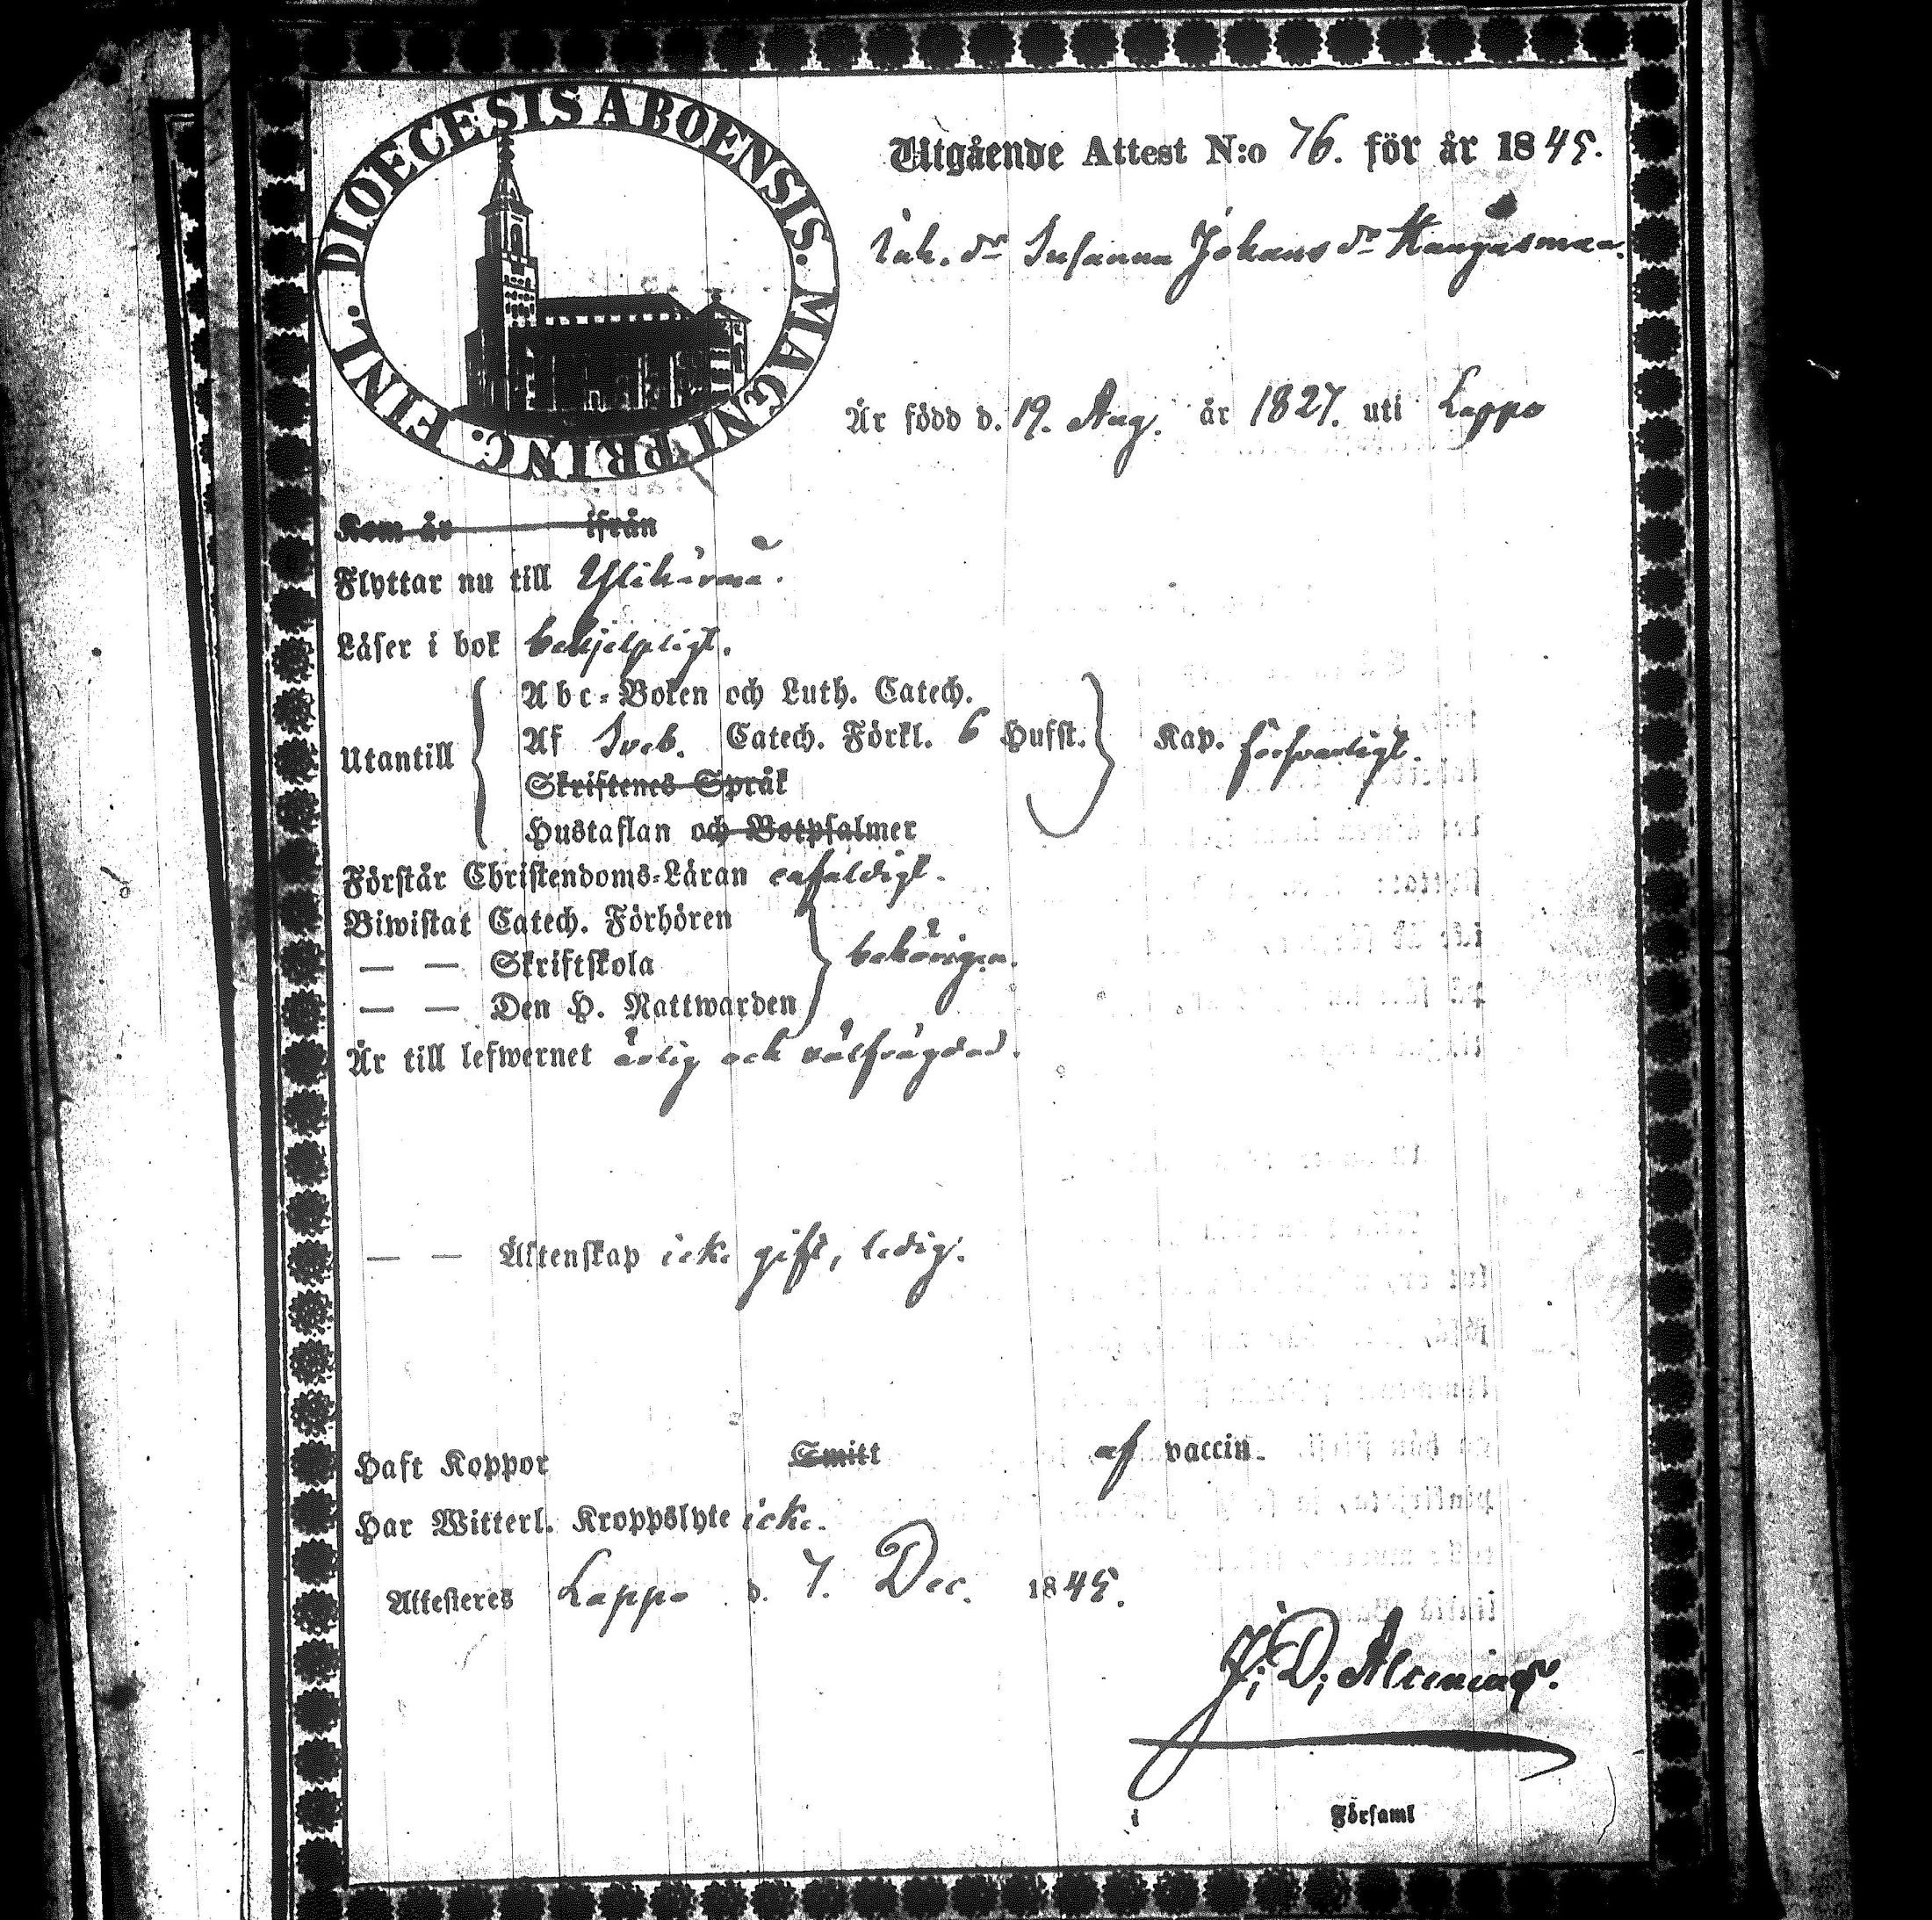 DIOECESIS ABOENSIS. MAGNI PRINC. FINL.
Utgående Attest N:o 76. för år 1845.
Inh. dr Susanna Johans dr Kangasmaa.
Är född d. 19. Aug. år 1827. uti Lappo
Kom år ifrån
Flyttar nu till Ylihärmä.
Läser i bok behjelpligt.
Abc-Boken och Luth. Catech.
Utantill Af Sveb. Catech. Förkl. 6 Hufst. Kap. försvarligt.
Skriftenes Språk
Hustaflan och Botpsalmer
Förstår Christendoms-Läran enfaldigt.
Biwistat Catech. Förhören
— — Skriftskola behörigen.
— — Den H. Nattwarden
Är till lefwernet ärlig och välfrägdad.
— — Äktenskap icke gift, ledig.
Haft Koppor Smitt af vaccin.
Har Witterl. Kroppslyte icke.
Attesteres Lappo d. 7. Dec. 1845.
J. D. Alcenius.
i Församl